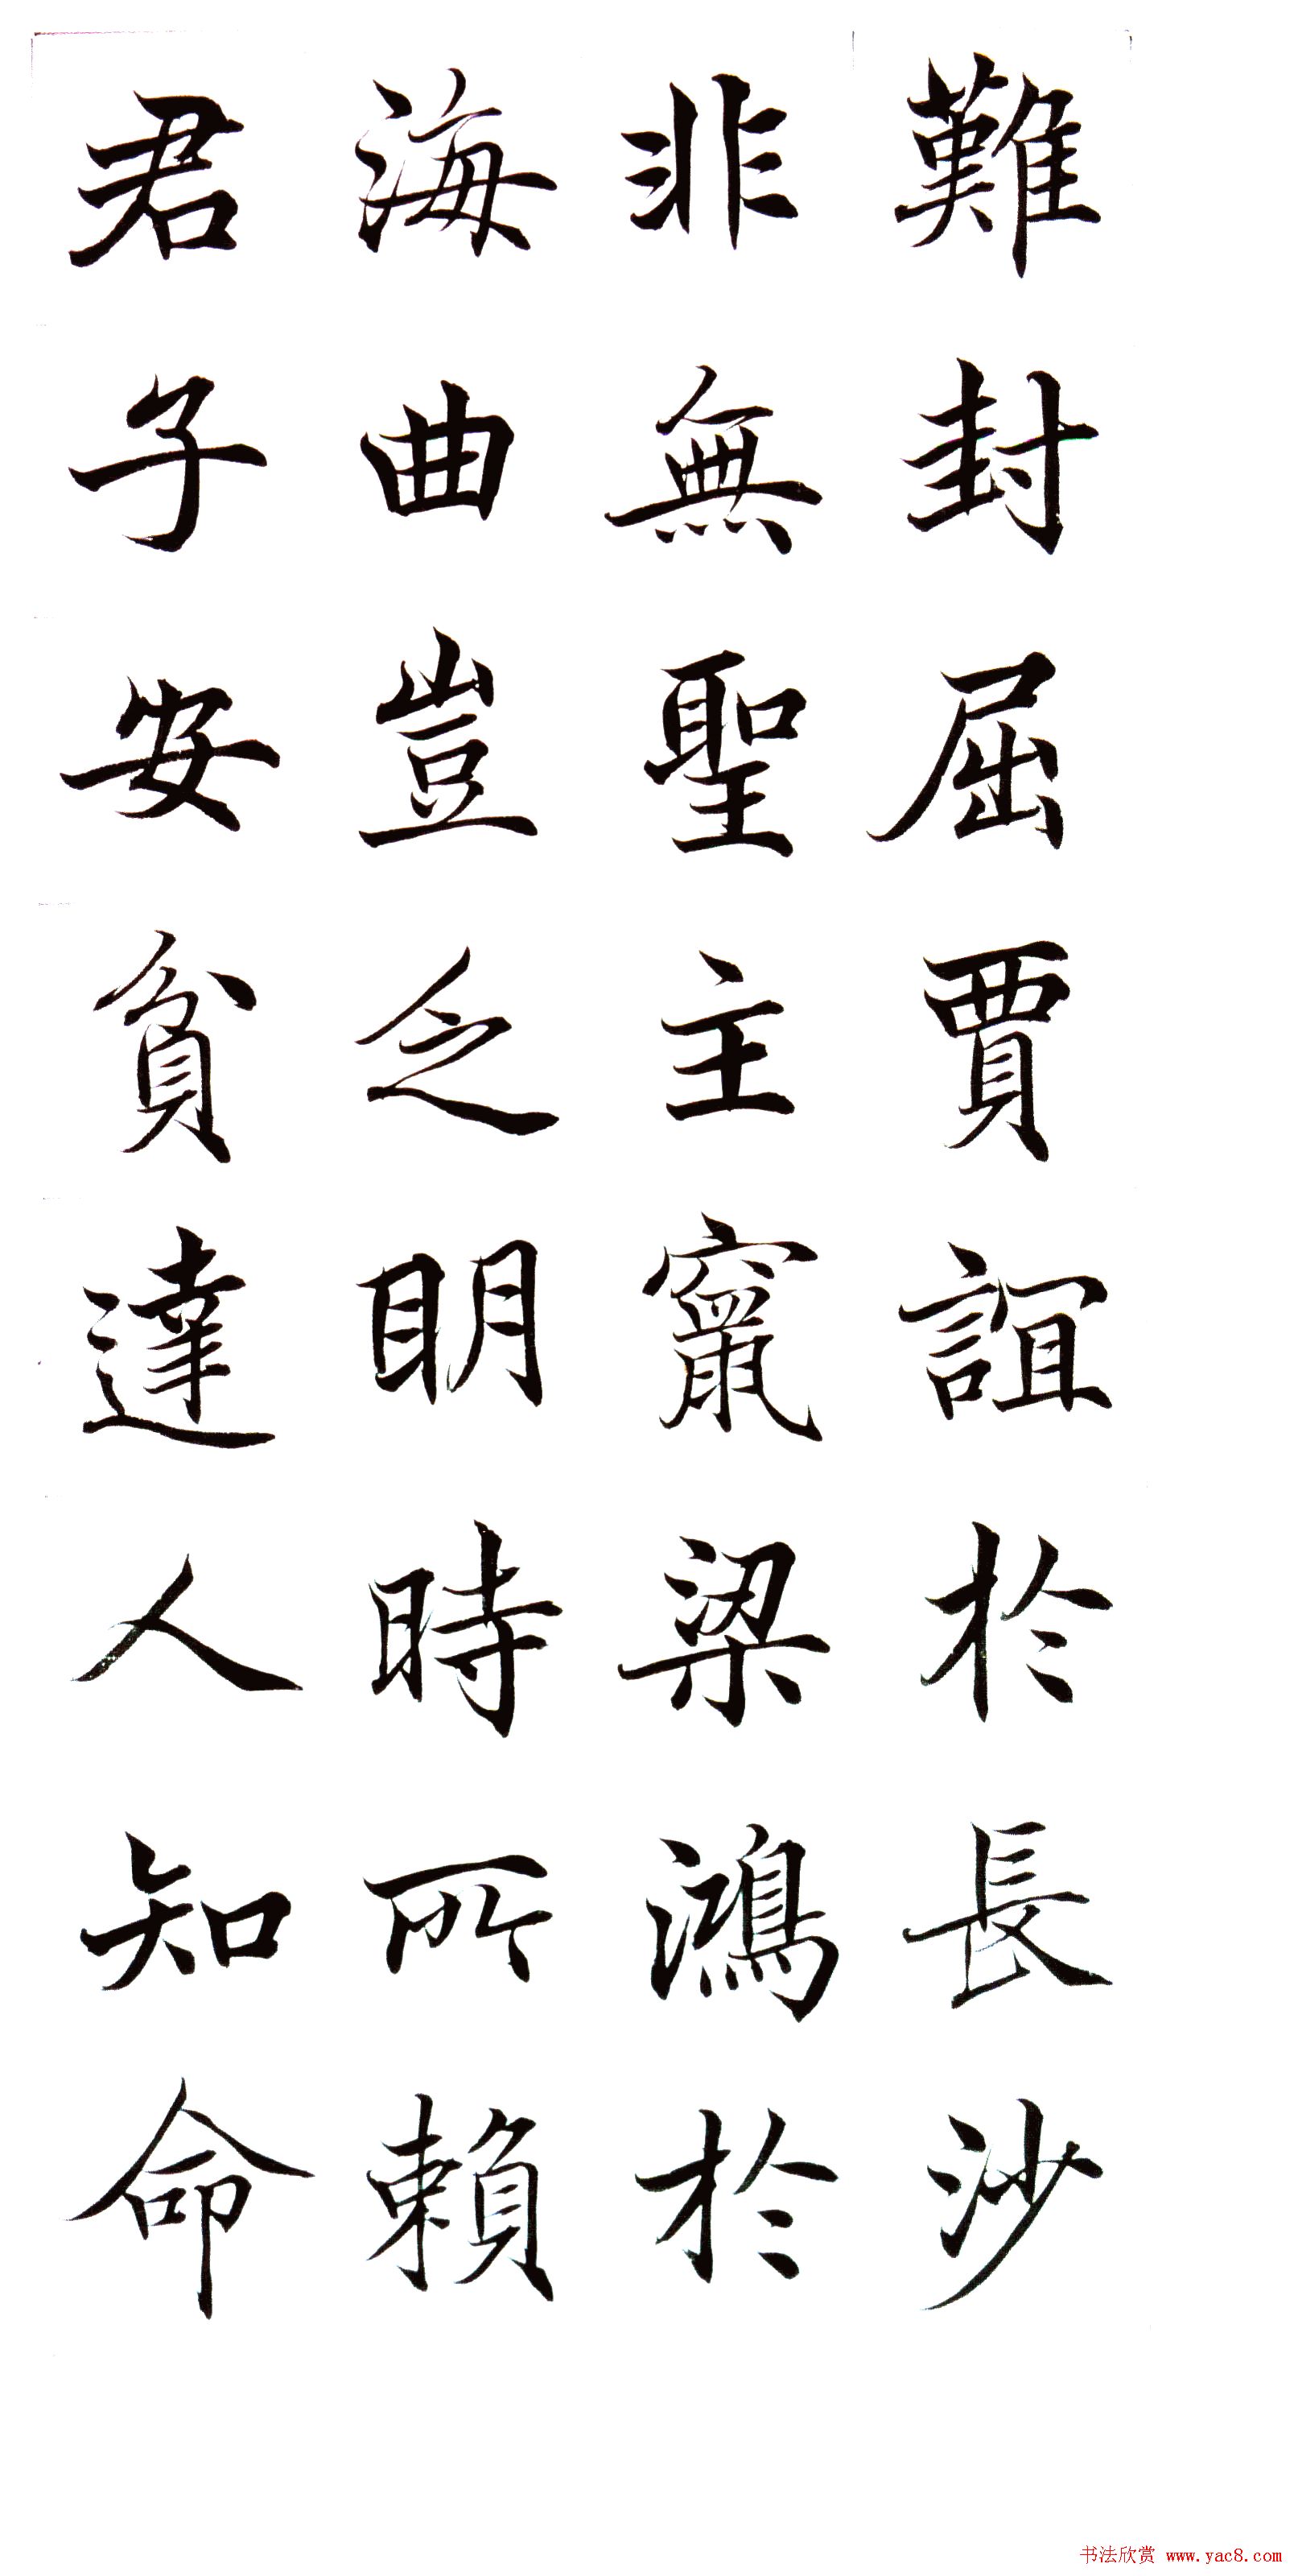 難封屈賈誼於長沙
非無聖主竄梁鴻於
海曲豈乏明時所賴
君子安貧達人知命
书法欣赏 www.yac8.com